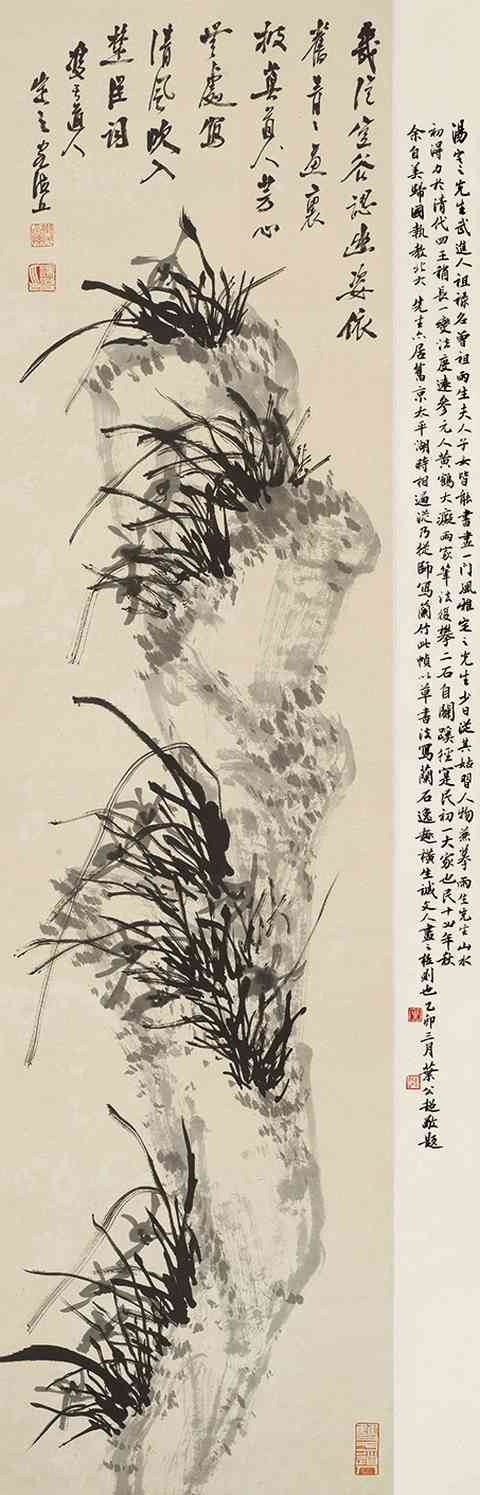 湯定之先生武進人祖祿名曾祖雨生夫人子女皆能書畫一门風雅定之先生少日從其姑習人物兼摹雨生先生山水
初得力於清代四王稍長一變法度遠參元人黃鶴大癡兩家筆法後攀二石自闢蹊徑寔民初一大家也民十五年秋
余自美歸國執教北大先生亦居舊京太平湖時相過從乃從師寫蘭竹此幀以草書法寫蘭石逸趣橫生誠文人畫之極則也乙卯三月葉公超敬題
幾從空谷認幽姿依
舊青青畫裏
披真箇人芳心
無處寫
清風吹入
楚臣詞
雙于道人
定之